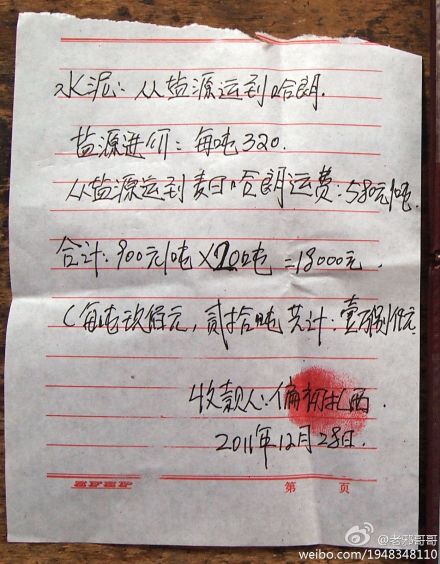 水泥：从盐源运到哈朗.
盐源进价：每吨320.
从盐源运到麦日哈朗运费：580元/吨.
合计：900元/吨×20吨=18000元.
(每吨玖佰元，贰拾吨共计：壹万捌仟元
收款人：偏初扎西.
2011年12月28日.
第 页
@老邪哥哥
weibo.com/1948348110